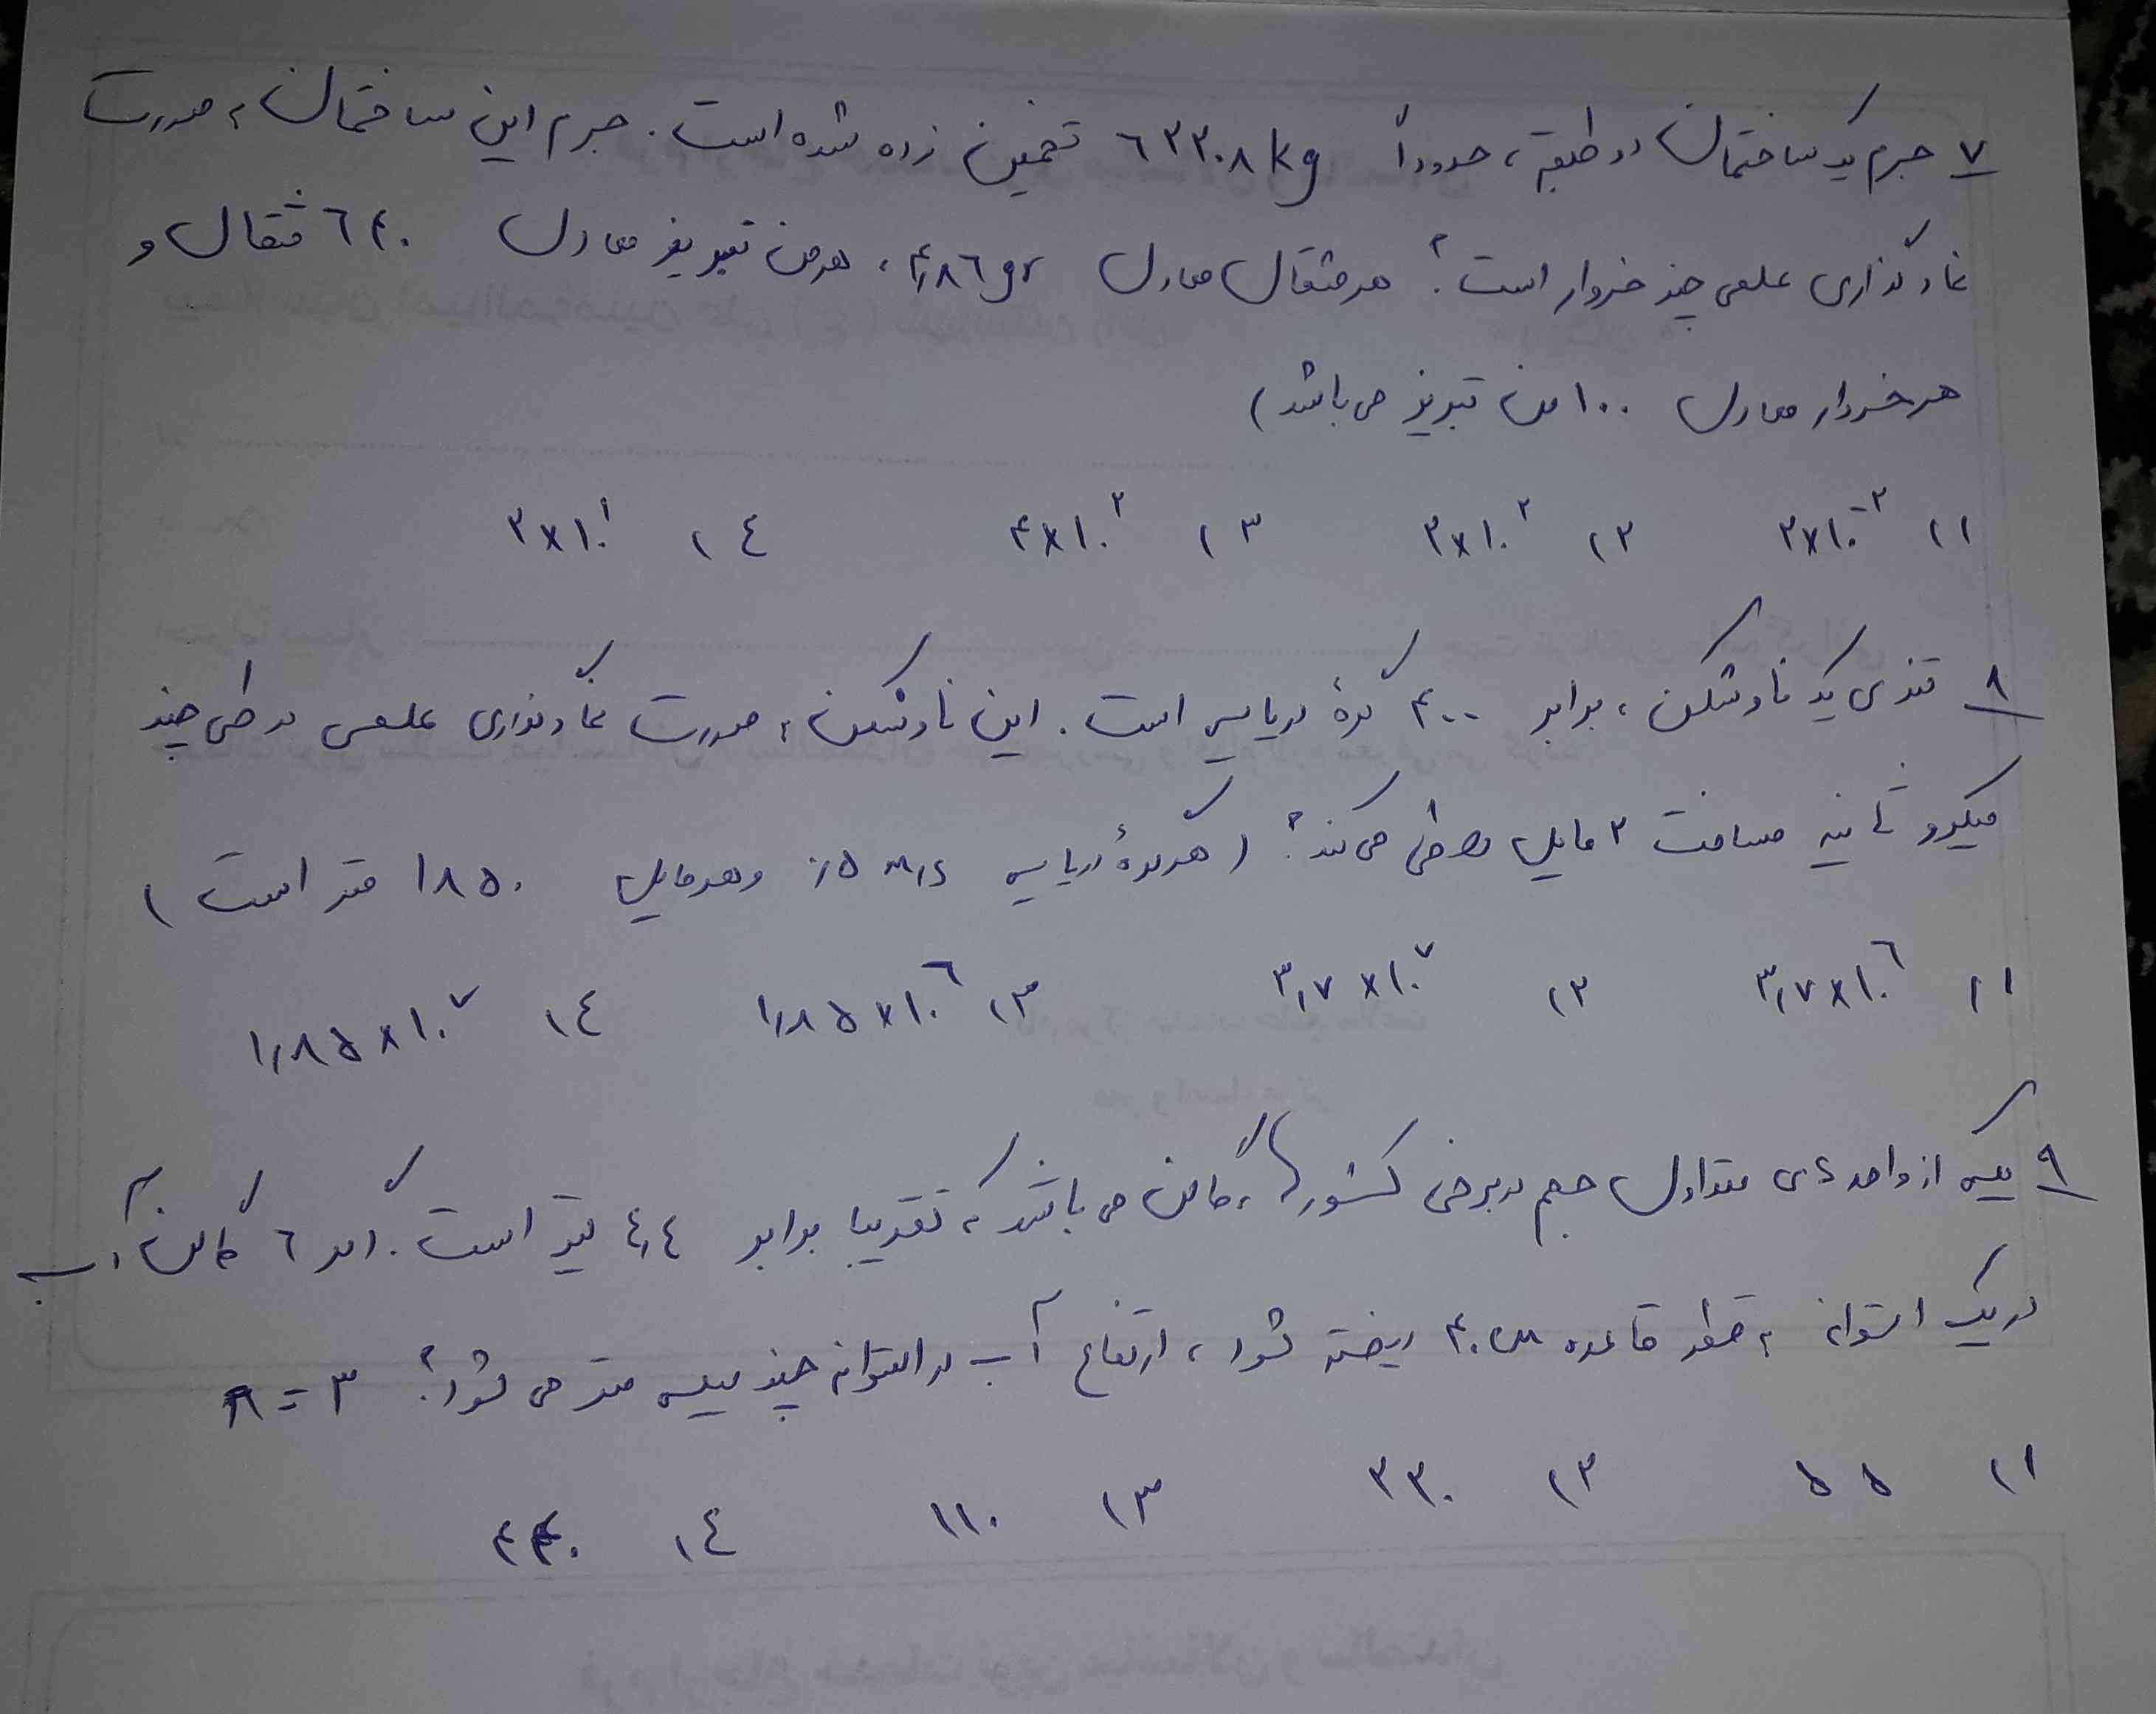 ۷ جرم یک ساختمان دو طبقه، حدوداً ۶۲۲۰۸ kg تخمین زده شده است. جرم این ساختمان به صورت
نمادگذاری علمی چند خروار است؟ هر مثقال معادل ۴٫۸۶ gr، هر من تبریز معادل ۶۴۰ مثقال و
هر خروار معادل ۱۰۰ من تبریز می باشد)
۱) ۲×۱۰⁻۲ ۲) ۲×۱۰۲ ۳) ۴×۱۰۲ ۴) ۲×۱۰۱
۸ تندی یک ناوشکن، برابر ۴۰۰ گره دریایی است. این ناوشکن به صورت نمادگذاری علمی در طی چند
میکرو ثانیه مسافت ۲ مایل را طی می کند؟ (هر گره دریایی ۰٫۵ m/s و هر مایل ۱۸۵۰ متر است)
۱) ۳٫۷×۱۰۶ ۲) ۳٫۷×۱۰۷ ۳) ۱٫۸۵×۱۰۶ ۴) ۱٫۸۵×۱۰۷
۹ یکی از واحدهای متداول حجم در برخی کشورها، گالن می باشد که تقریبا برابر ۴٫۴ لیتر است. اگر ۶ گالن آب
در یک استوانه به قطر قاعده ۴۰ cm ریخته شود، ارتفاع آب در استوانه چند میلی متر می شود؟ π = ۳
۱) ۵۵ ۲) ۲۲۰ ۳) ۱۱۰ ۴) ۴۴۰